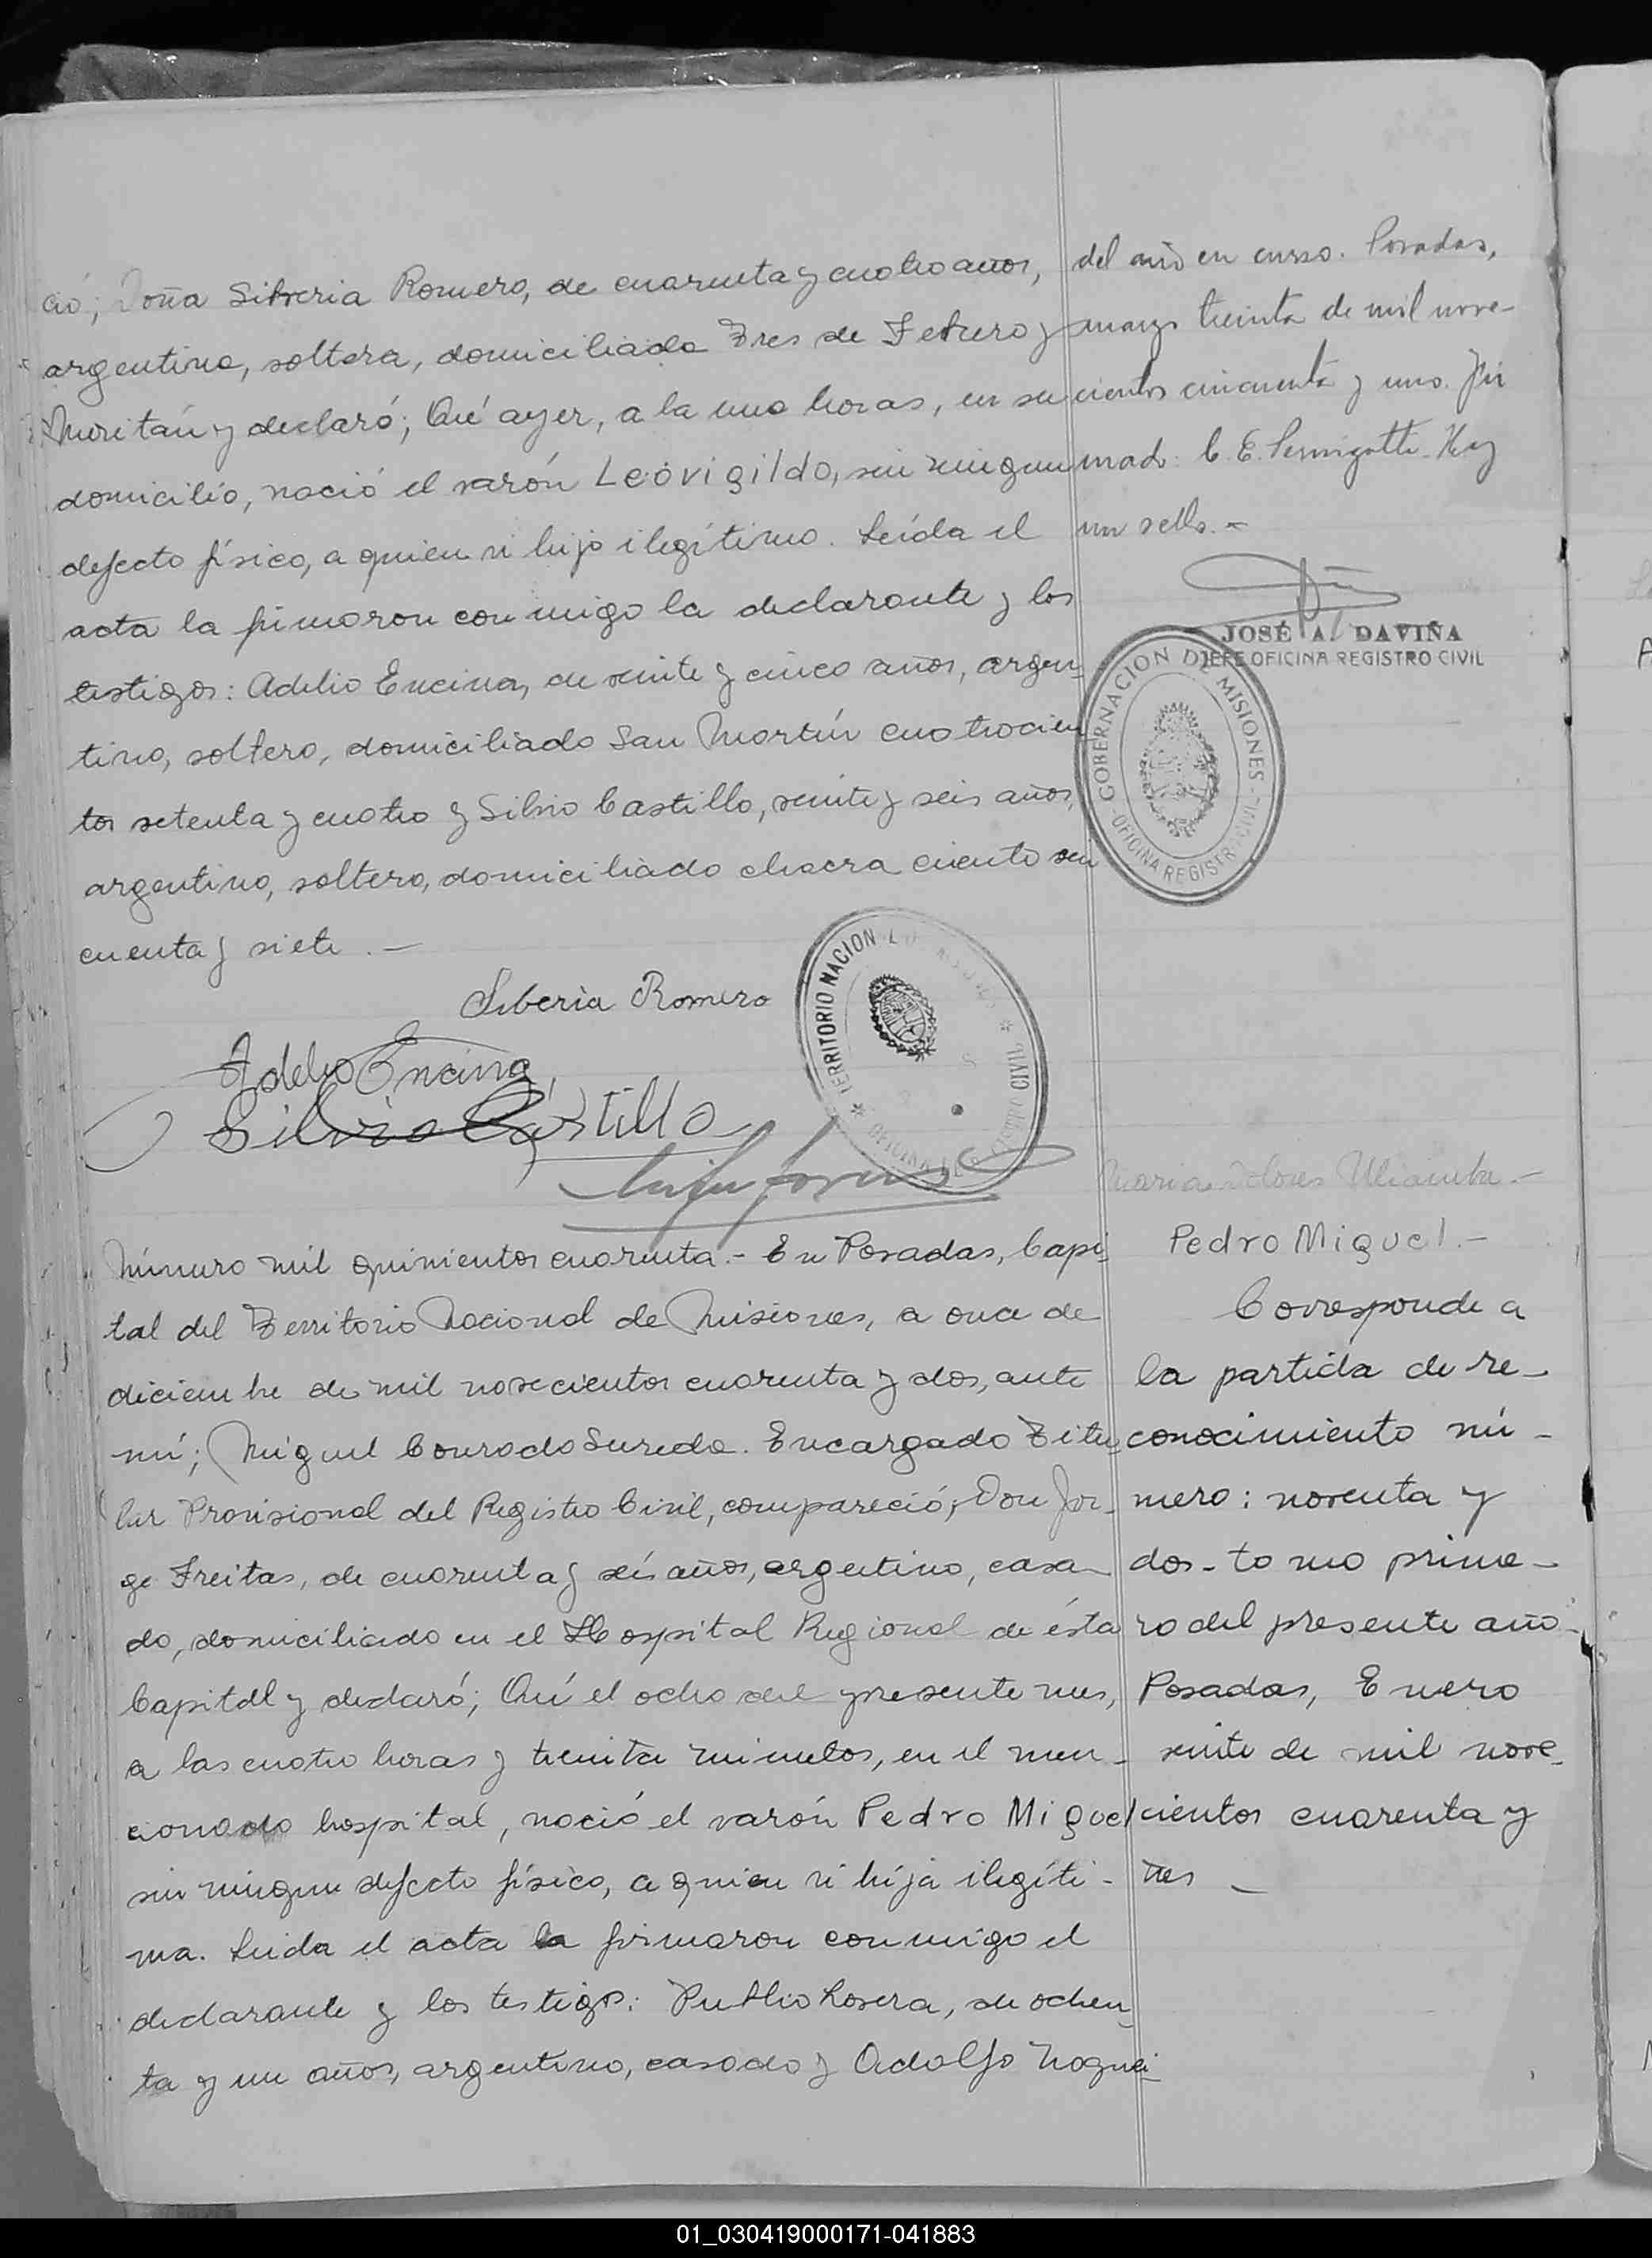 ció; Doña Silveria Romero, de cuarenta y cuatro años,
argentina, soltera, domiciliada Tres de Febrero y
Ituzaitán y declaró; Qué ayer, a la una horas, en su
domicilio, nació el varón Leovigildo, sin ningun
defecto físico, a quien vi hijo ilegítimo. Leída el
acta la firmaron conmigo la declarante y los
testigos: Adelio Encina, de veinte y cinco años, argen-
tino, soltero, domiciliado San Martín cuatrocien
tos setenta y cuatro y Silvio Castillo, veinte y seis años,
argentino, soltero, domiciliado chacra ciento sin
cuenta y siete. —
Siberia Romero
Adelio Encina
Silvio Castillo
TERRITORIO NACIONAL
OFICINA REGISTRO CIVIL
del año en curso. Posadas,
marzo treinta de mil nove-
cientos cincuenta y uno. Fir
mado: C. E. Hay
un sello. -
JOSÉ A. DAVIÑA
JEFE OFICINA REGISTRO CIVIL
GOBERNACION DE MISIONES
OFICINA REGISTRO CIVIL
Número mil quinientos cuarenta. - En Posadas, Capi-
tal del Territorio Nacional de Misiones, a once de
diciembre de mil novecientos cuarenta y dos, ante
mí; Miguel Conrado Sureda. Encargado Titu-
lar Provisional del Registro Civil, compareció; Don Jor-
ge Freitas, de cuarenta y seis años, argentino, casa-
do, domiciliado en el Hospital Regional de ésta
Capital y declaró; Qué el ocho del presente mes,
a las cuatro horas y treinta minutos, en el men-
cionado hospital, nació el varón Pedro Miguel
sin ningun defecto físico, a quien vi hija ilegíti-
ma. Leida el acta la firmaron conmigo el
declarante y los testigos: Publio Losera, de ochen
ta y un años, argentino, casado y Adolfo Noguei-
Maria Dolores
Pedro Miguel. -
Corresponde a
la partida de re-
conocimiento nú-
mero: noventa y
dos - tomo prime-
ro del presente año -
Posadas, Enero
veinte de mil nove-
cientos cuarenta y
tres -
01_030419000171-041883